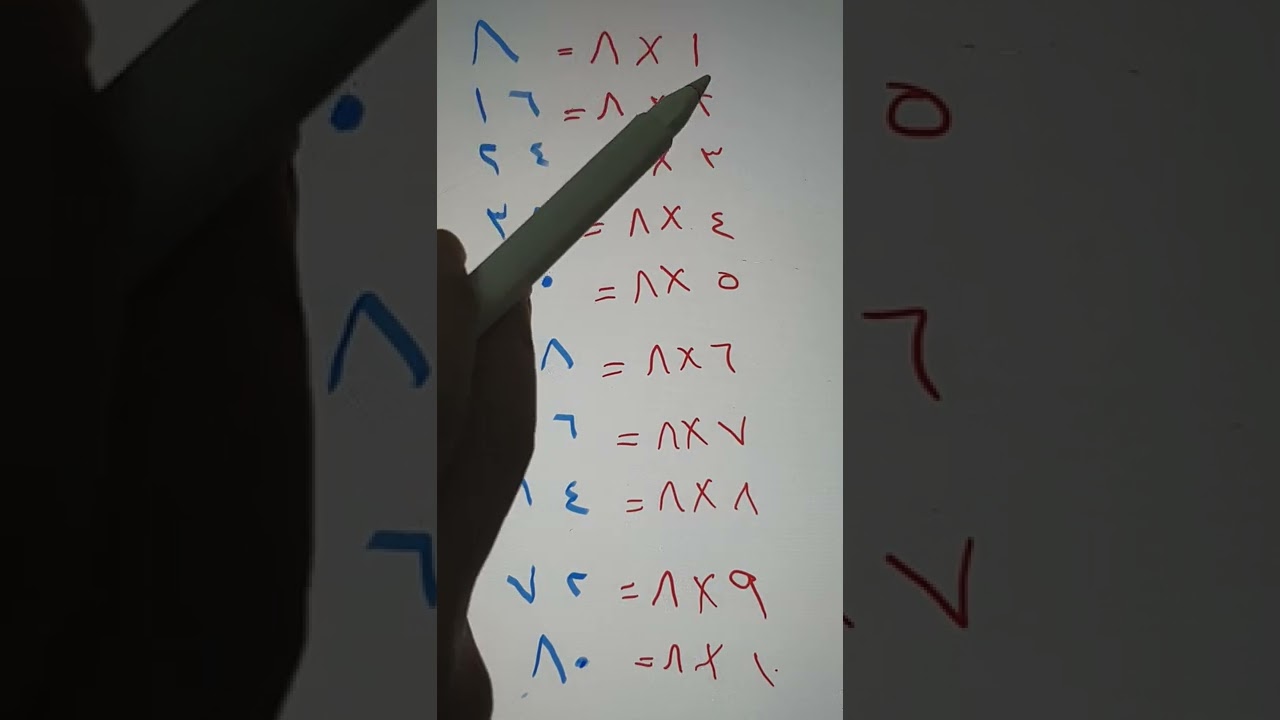 ١ × ٨ = ٨
٢ × ٨ = ١٦
٣ × ٢٤
٤ × ٨ = ٣
٥ × ٨ = ٠
٦ × ٨ = ٨
٧ × ٨ = ٦
٨ × ٨ = ٤
٩ × ٨ = ٧٢
١٠ × ٨ = ٨٠